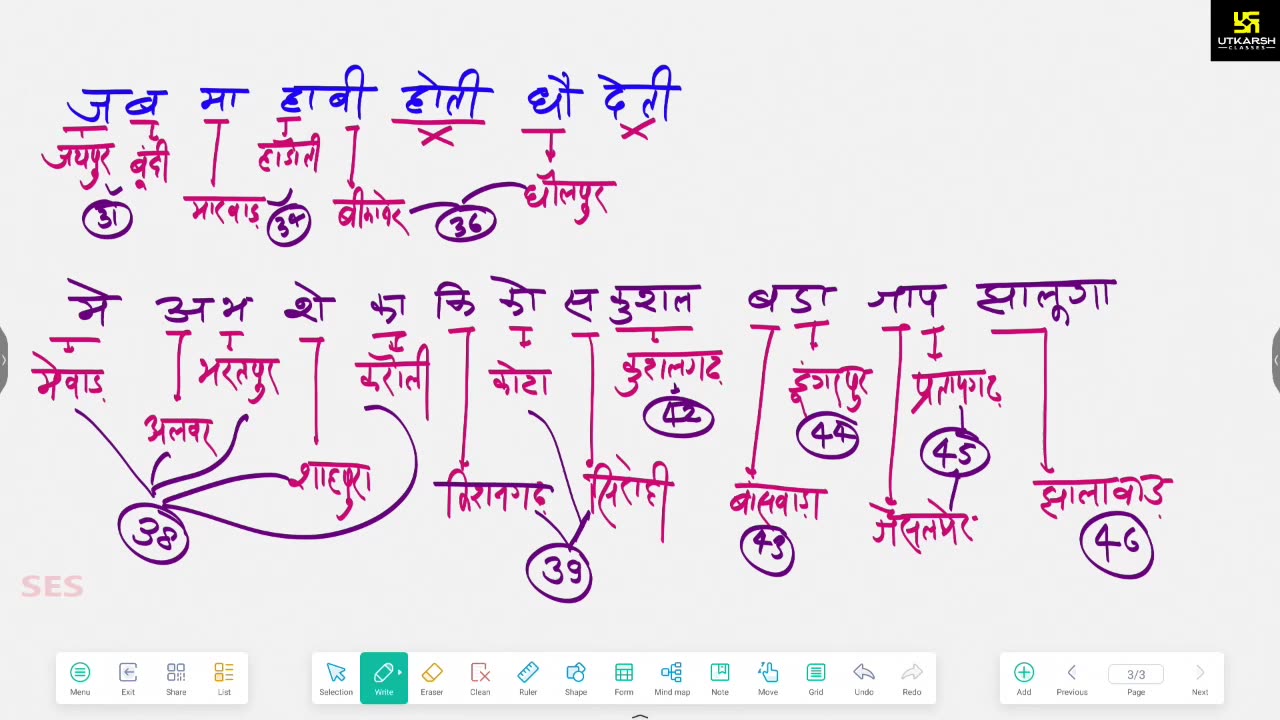 UTKARSH
CLASSES
जब मा हाबी होती धौ देती
जयपुर बूंदी हाडोती
31 मारवाड़ 34 बीकानेर 36 धौलपुर
मे अ भ शे का कि को स कुशल बडा जाप झालूगा
मेवाड़ भरतपुर करौली कोटा कुशलगढ़ डूंगरपुर प्रतापगढ़
अलवर 42 44 45
शाहपुरा किशनगढ़ सिरोही बांसवाड़ा जैसलमेर झालावाड़
38 39 43 46
SES
Menu Exit Share List Selection Write Eraser Clean Ruler Shape Form Mind map Note Move Grid Undo Redo Add Previous 3/3 Page Next